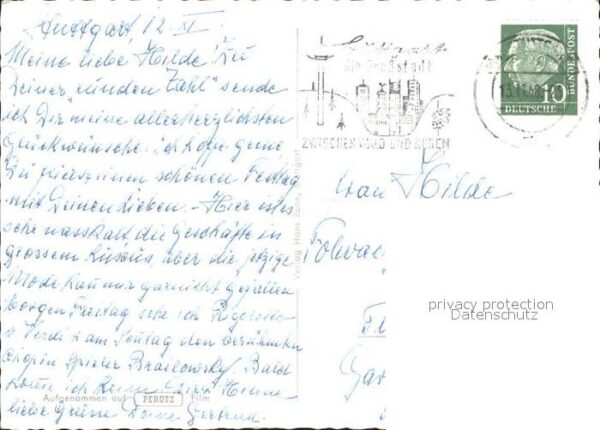 Stuttgart 12. XI.
Meine liebe Hilde! Zu
Deiner "runden Zahl" sende
ich Dir meine allerherzlichsten
Glückwünsche. ich hoffe gerne
Du feierst einen schönen Festtag
mit Deinen Lieben. - Hier ist es
nasskalt, die Geschäfte in
grossem Luxus, aber die jetzige
Mode kann mir garnicht gefallen
Morgen Freitag sehe ich Rigoletto
v. Verdi & am Sonntag den berühmten
Chopin Spieler Brailowsky. Bald
komme ich
liebe Grüsse Deine Gertrud.
Aufgenommen auf PERUTZ Film
Verlag Hans
Stuttgart
die Großstadt
ZWISCHEN WALD UND REBEN
10
DEUTSCHE BUNDESPOST
Frau Hilde
privacy protection
Datenschutz